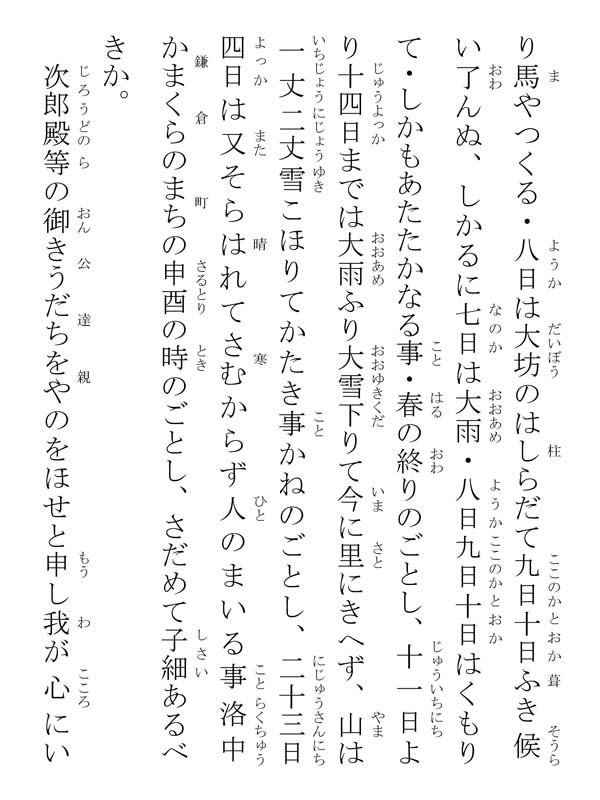 り馬やつくる・八日は大坊のはしらだて九日十日ふき候
い了んぬ、しかるに七日は大雨・八日九日十日はくもり
て・しかもあたたかなる事・春の終りのごとし、十一日よ
り十四日までは大雨ふり大雪下りて今に里にきへず、山は
一丈二丈雪こほりてかたき事かねのごとし、二十三日
四日は又そらはれてさむからず人のまいる事洛中
かまくらのまちの申酉の時のごとし、さだめて子細あるべ
きか。
次郎殿等の御きうだちをやのをほせと申し我が心にい